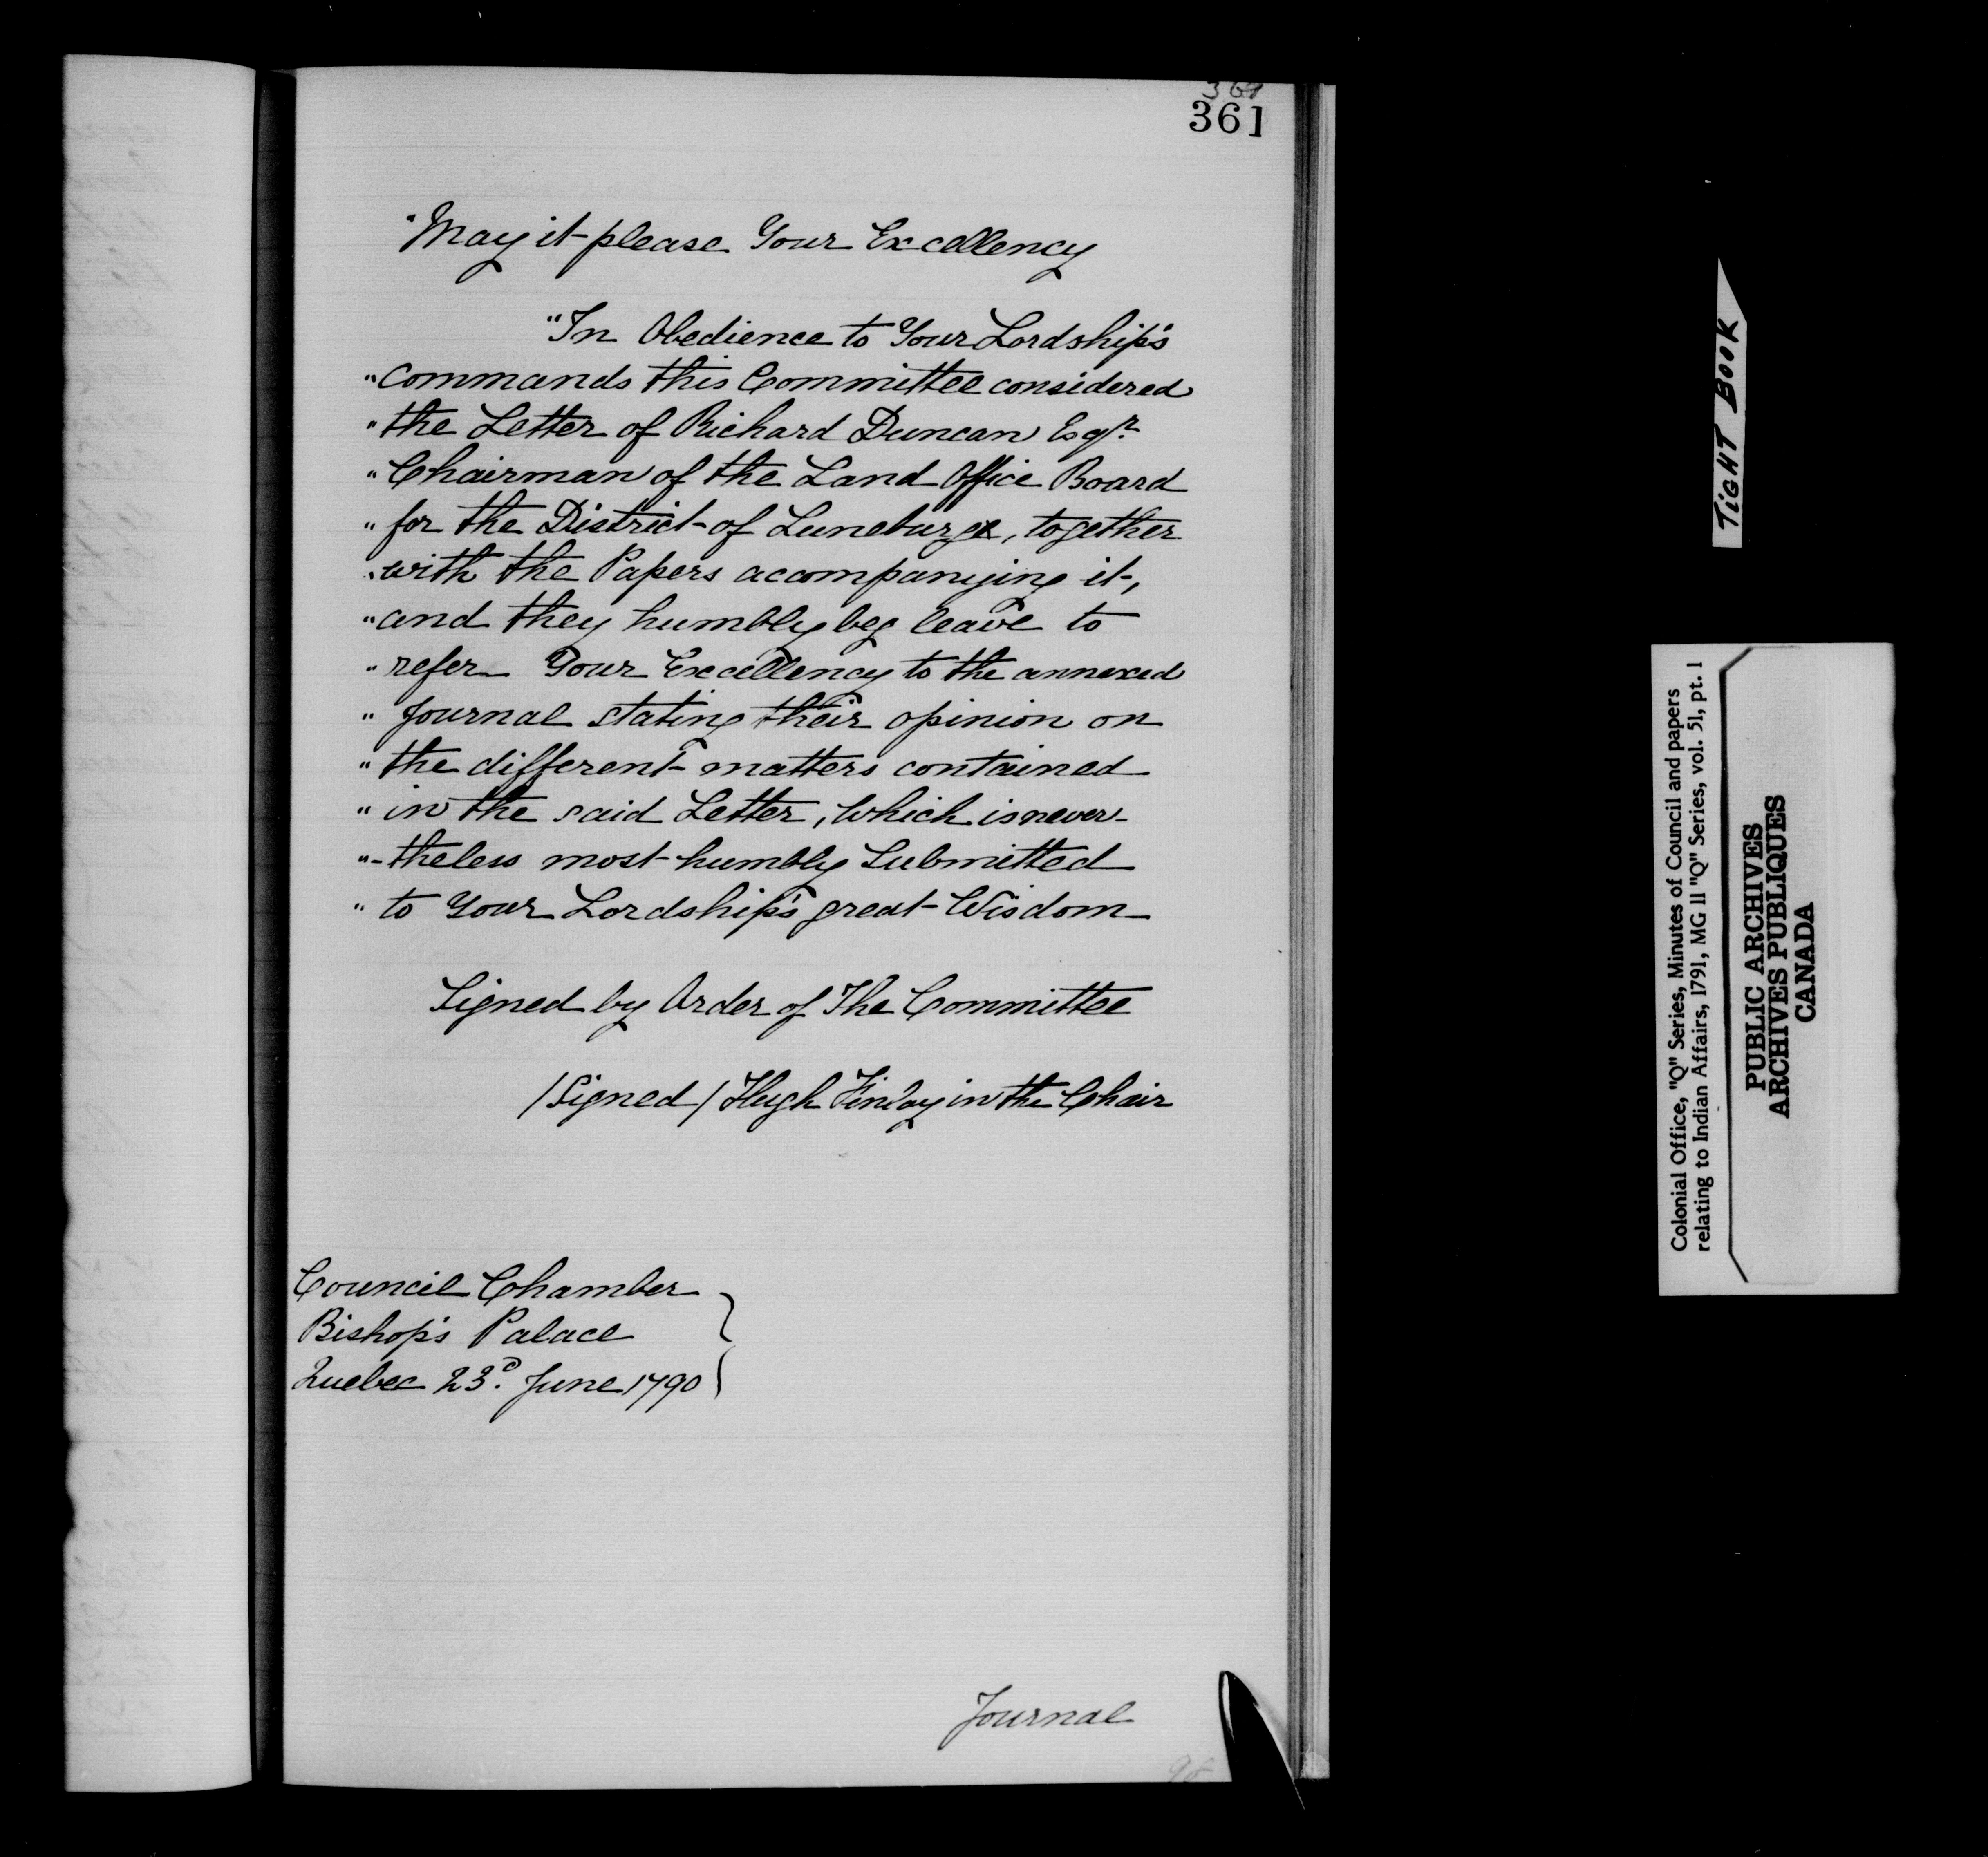 361
361
"May it please Your Excellency
"In Obedience to Your Lordship's
"commands this Committee considered
"the Letter of Richard Duncan Esqr.
"Chairman of the Land Office Board
"for the District of Luneburg, together
"with the Papers accompanying it,
"and they humbly beg leave to
"refer Your Excellency to the annexed
"Journal stating their opinion on
"the different matters contained
"in the said Letter, which is never-
"-theless most humbly Submitted
"to Your Lordship's great Wisdom
Signed by Order of The Committee
/Signed/ Hugh Finlay in the Chair
Council Chamber
Bishop's Palace
Quebec 23d. June 1790
Journal
TIGHT BOOK
Colonial Office, "Q" Series, Minutes of Council and papers
relating to Indian Affairs, 1791, MG 11 "Q" Series, vol. 51, pt. 1
PUBLIC ARCHIVES
ARCHIVES PUBLIQUES
CANADA